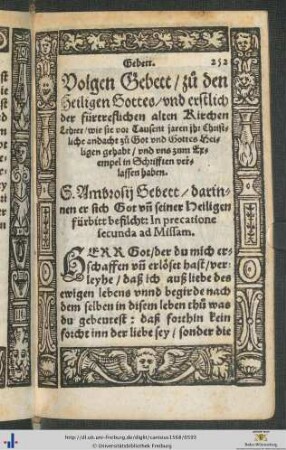 Gebett. 252
Volgen Gebett / zů den
Heiligen Gottes / vnd erstlich
der fürtreflichen alten Kirchen
Lehrer / wie sie vor Tausent jaren jhr Christ-
liche andacht zů Got vnd Gottes Hei-
ligen gehabt / vnd vns zum Ex-
empel in Schrifften ver-
lassen haben.
S. Ambrosij Gebett / darin-
nen er sich Got vñ seiner Heiligen
fürbitt befilcht: In precatione
secunda ad Missam.
HERR Got / der du mich er-
schaffen vñ erlöset hast / ver-
leyhe / daß ich auß liebe des
ewigen lebens vnnd begirde nach
dem selben in disem leben thů was
du gebeutest: daß forthin kein
forcht inn der liebe sey / sonder die
http://dl.ub.uni-freiburg.de/diglit/canisius1568/0593
© Universitätsbibliothek Freiburg